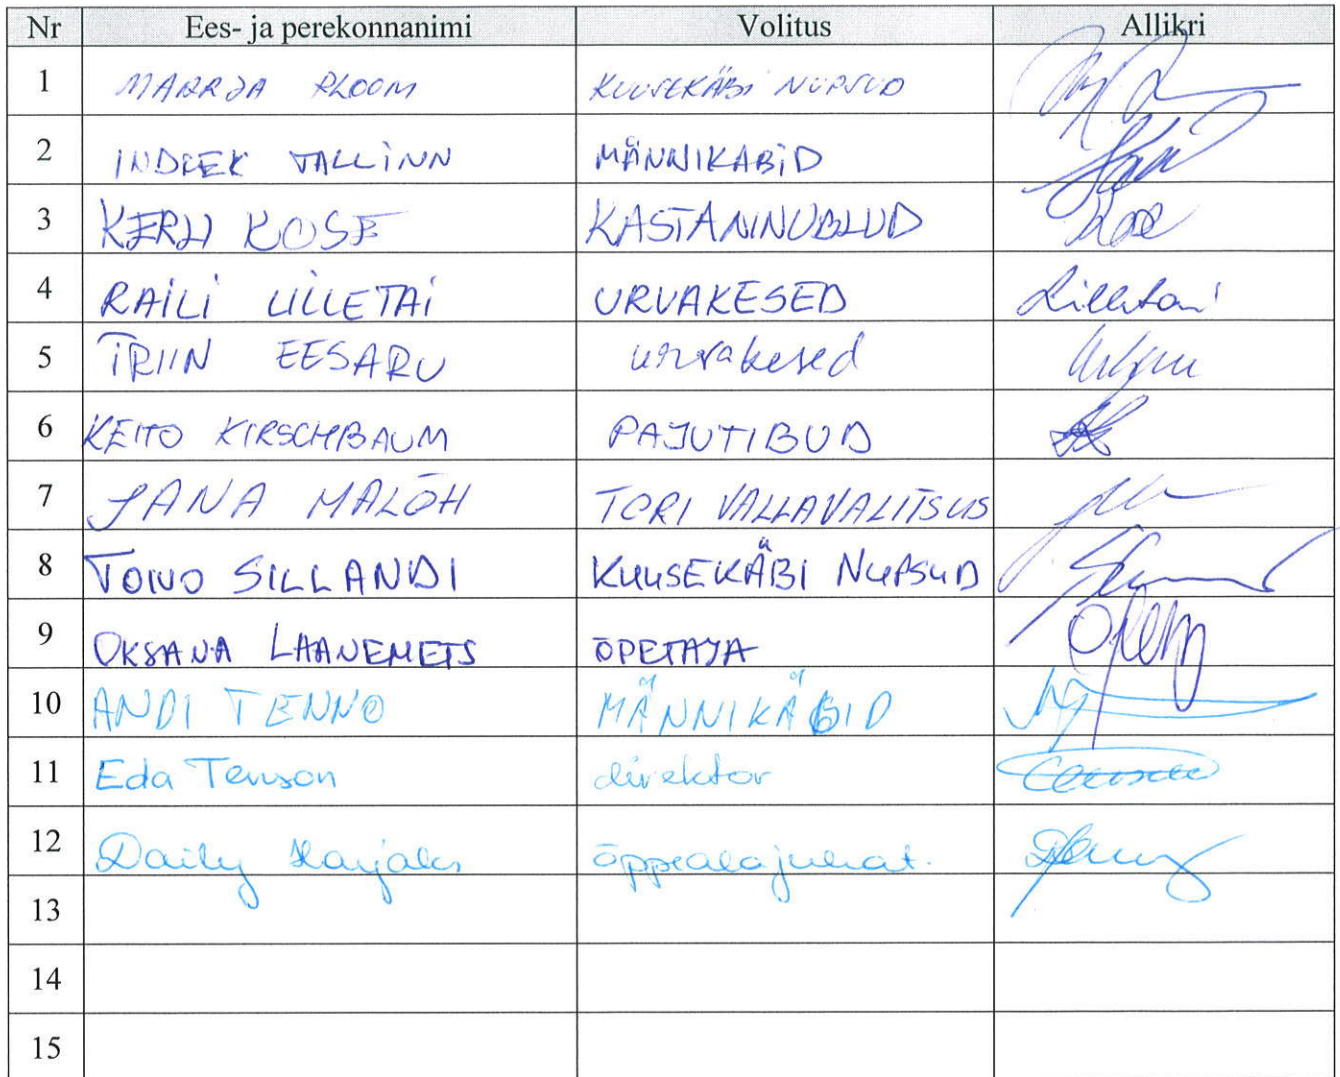 Nr Ees- ja perekonnanimi Volitus Allikri
1 MARRJA PLOOM KUUSEKÄBI NUPSUD
2 INDREK TALLINN MÄNNIKABID
3 KERLI KOSE KASTANINUBLUD Kose
4 RAILI LILLETAI URVAKESED Lilletai
5 TRIIN EESARU urvakesed
6 KEITO KIRSCHBAUM PAJUTIBUD
7 JANA MALÕH TORI VALLAVALITSUS
8 TOIVO SILLANDI KUUSEKÄBI NUPSUD
9 OKSANA LAANEMETS ÕPETAJA
10 ANDI TENNO MÄNNIKÄBID
11 Eda Tenson direktor
12 Daily Karjaks õppealajuhat.
13
14
15